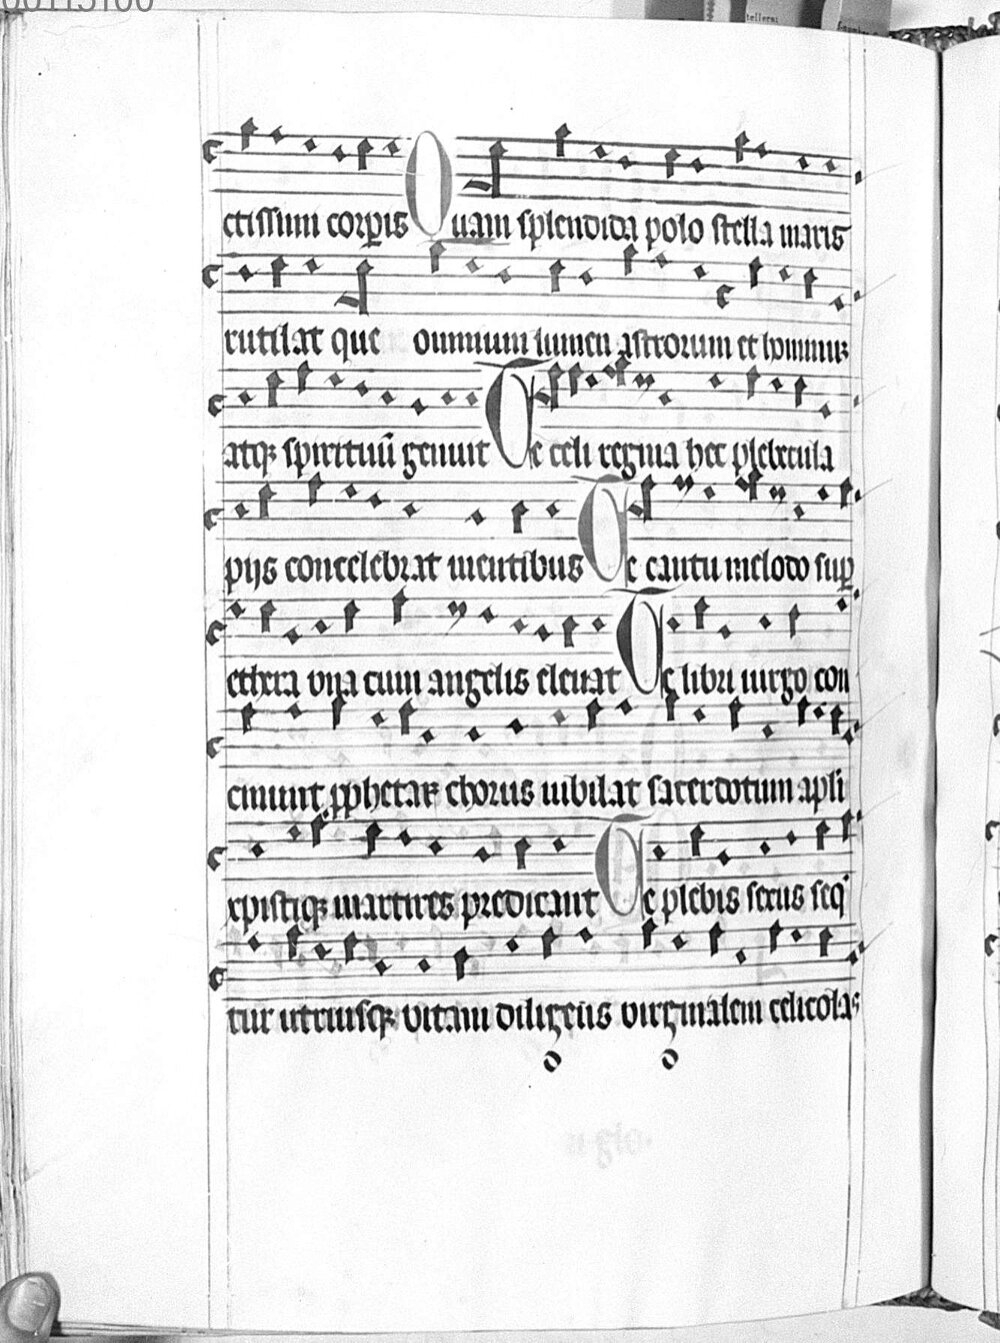 00113100
tellersi
ctissimi corꝑis Quam splendida polo stella maris
rutilat que omnium lumen astrorum et hominum
atqꝫ spirituū genuit Te celi regina hec plebecula
pijs concelebrat mentibus Te cantu melodo suꝑ
ethera vna cum angelis eleuat Te libri uirgo con
cinunt ꝓphetaꝝ chorus iubilat sacerdotum apli
xpistiqꝫ martires predicant Te plebis sexus seqͥ
tur utriusqꝫ vitam diligens virginalem celicolas